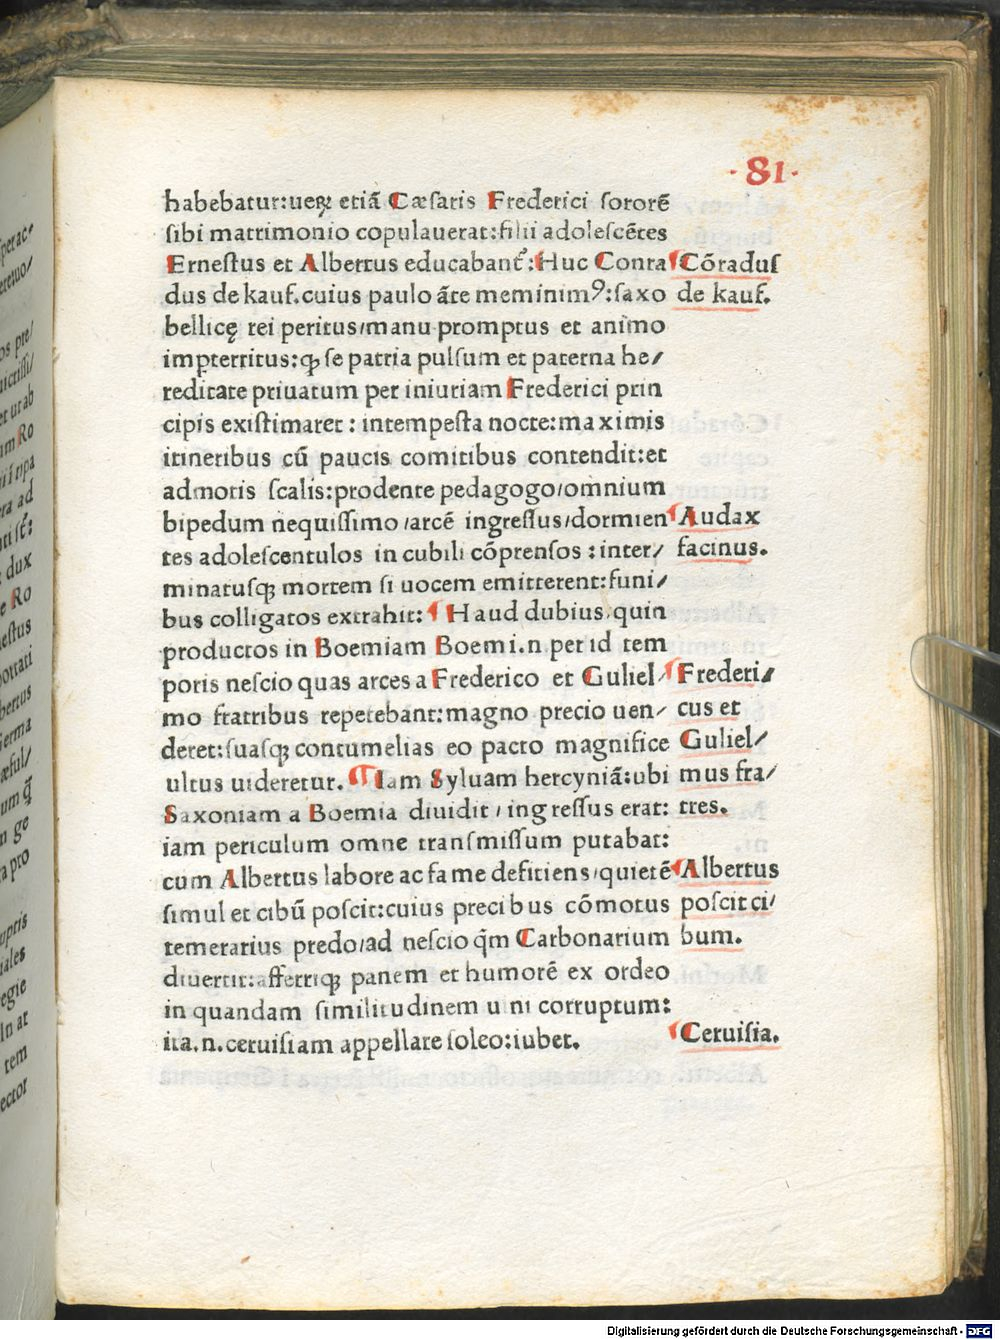 ·81·
habebatur:ueꝝ etiã Cæsaris Frederici sororẽ
ſibi matrimonio copulauerat:filii adoleſcẽtes
Erneſtus et Albertus educabant᷑:Huc Conra
dus de kauf.cuius paulo ãte meminimꝰ:ſaxo
bellicę rei peritus/manu promptus et animo
impterritus:ꝙ ſe patria pulſum et paterna he/
reditate priuatum per iniuriam Frederici prin
cipis exiſtimaret : intempeſta nocte:maximis
itineribus cũ paucis comitibus contendit:et
admotis ſcalis:prodente pedagogo/omnium
bipedum nequiſſimo/arcẽ ingreſſus/dormien
tes adoleſcentulos in cubili cõprenſos : inter/
minatuſq; mortem ſi uocem emitterent:funi/
bus colligatos extrahit: ¶ Haud dubius.quin
productos in Boemiam Boemi.n.per id tem
poris neſcio quas arces a Frederico et Guliel/
mo fratribus repetebãt:magno precio uen/
deret:ſuaſq; contumelias eo pacto magnifice
ultus uideretur. ¶ Iam Syluam hercyniã:ubi
Saxoniam a Boemia diuidit/ingreſſus erat:
iam periculum omne tranſmiſſum putabat:
cum Albertus labore ac fame defitiens/quietẽ
ſimul et cibũ poſcit:cuius precibus cõmotus
temerarius predo/ad neſcio q̃m Carbonarium
diuertit:afferriq; panem et humorẽ ex ordeo
in quandam ſimilitudinem uini corruptum:
ita.n.ceruiſiam appellare ſoleo:iubet.
¶ Cõraduſ
de kauf.
¶ Audax
facinus.
¶ Frederi/
cus et
Guliel/
mus fra/
tres.
¶ Albertus
poſcit ci/
bum.
¶ Ceruiſia.
Digitalisierung gefördert durch die Deutsche Forschungsgemeinschaft - DFG